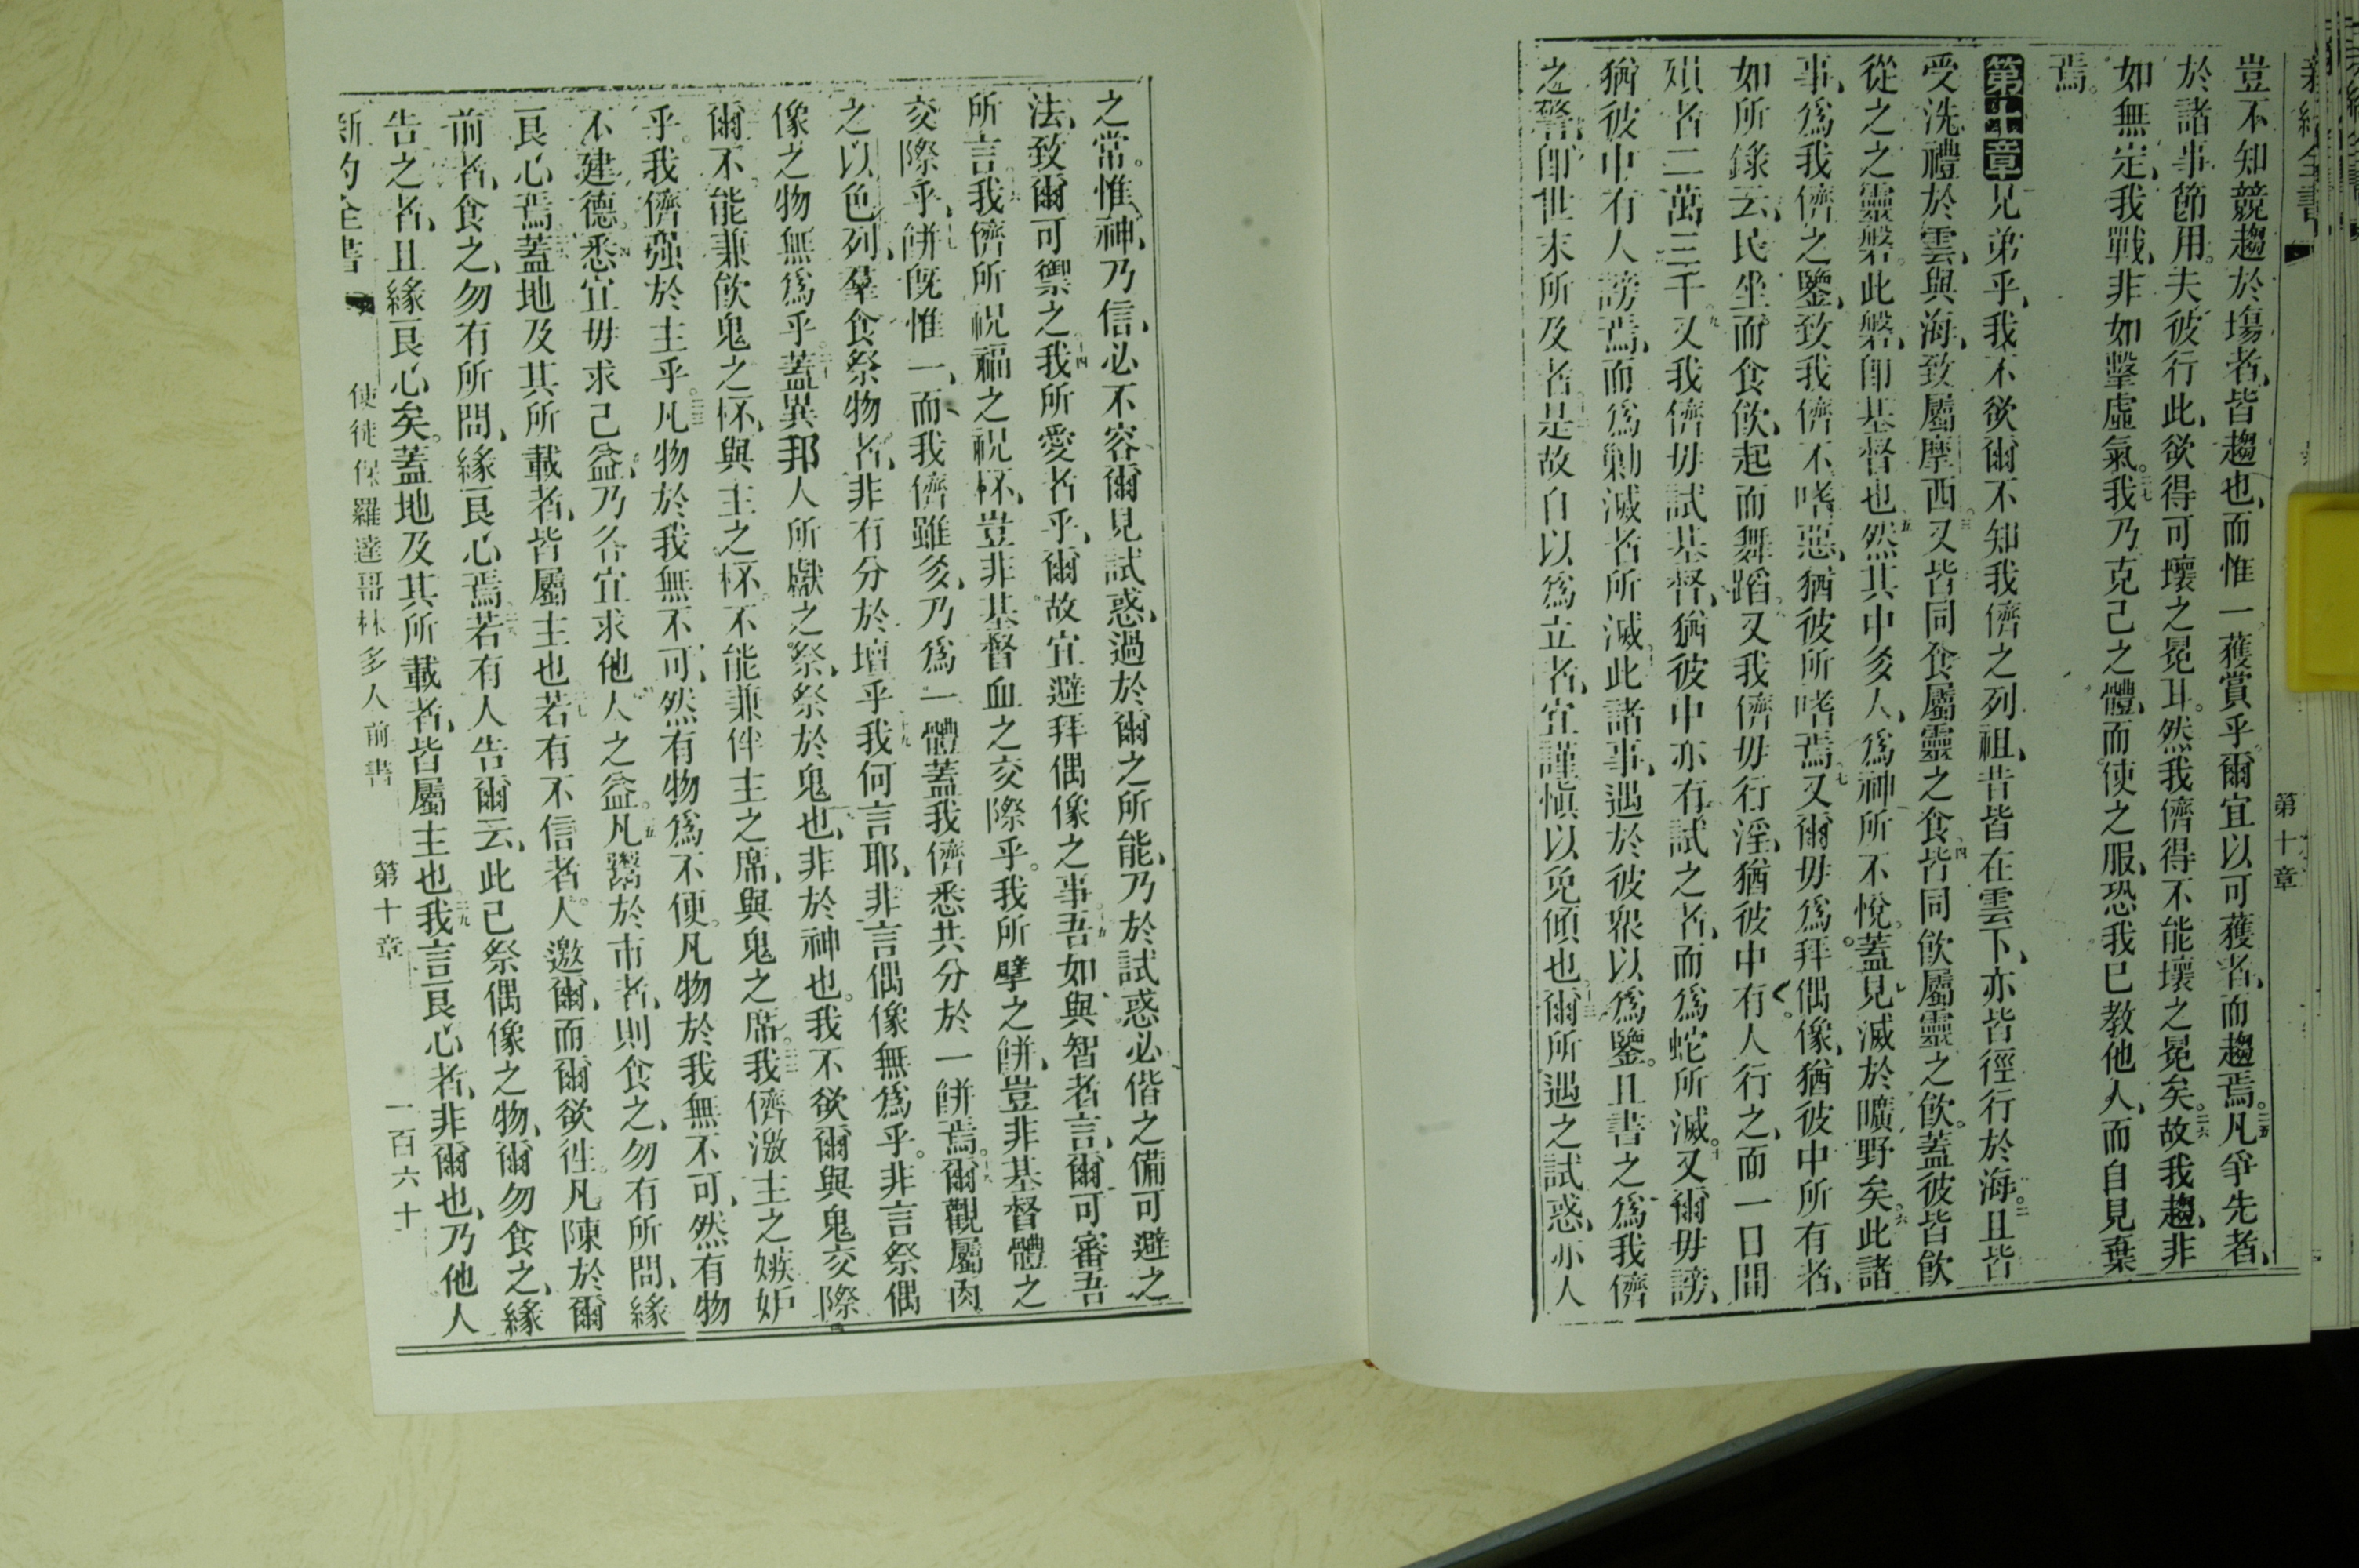 第十章
豈不知競趨於塲者、皆趨也、而惟一獲賞乎。爾宜以可獲者、而趨焉。二五凡爭先者、
於諸事節用。夫彼行此、欲得可壞之冕耳。然我儕得不能壞之冕矣。二六故我趨、非
如無定、我戰、非如擊虛氣。二七我乃克己之體、而使之服、恐我已教他人、而自見棄
焉。
第十章兄弟乎、我不欲爾不知我儕之列祖、昔皆在雲下、亦皆徑行於海。二且皆
受洗禮於雲、與海、致屬摩西。三又皆同食屬靈之食。四皆同飲屬靈之飲。蓋彼皆飲
從之之靈磐。此磐、卽基督也。五然其中多人、爲神所不悅。蓋見滅於曠野矣。六此諸
事、爲我儕之鑒、致我儕不嗜惡、猶彼所嗜焉。七又爾毋爲拜偶像、猶彼中所有者、
如所錄云、民坐而食飲、起而舞蹈。八又我儕毋行淫、猶彼中有人行之、而一日間
殞者二萬三千。九又我儕毋試基督、猶彼中亦有試之者、而爲蛇所滅。十又爾毋謗、
猶彼中有人謗焉、而爲勦滅者所滅。十一此諸事、遇於彼衆以爲鑒。且書之爲我儕
之警、卽世末所及者。十二是故自以爲立者、宜謹愼以免傾也。十三爾所遇之試惑、亦人
之常。惟神、乃信、必不容爾見試惑、過於爾之所能、乃於試惑必偕之備可避之
法、致爾可禦之。十四我所愛者乎、爾故宜避拜偶像之事。十五吾如與智者言、爾可審吾
所言。十六我儕所祝福之祝杯、豈非基督血之交際乎。我所擘之餅、豈非基督體之
交際乎。十七餅旣惟一、而我儕雖多、乃爲一體。蓋我儕悉共分於一餅焉。十八爾觀屬肉
之以色列、羣食祭物者、非有分於壇乎。十九我何言耶、非言偶像無爲乎。非言祭偶
像之物無爲乎。二十蓋異邦人所獻之祭、祭於鬼也、非於神也。我不欲爾與鬼交際。
爾不能兼飲鬼之杯、與主之杯。不能兼伴主之席、與鬼之席。二二我儕激主之嫉妒
乎。我儕强於主乎。二三凡物於我無不可、然有物爲不便。凡物於我無不可、然有物
不建德。二四悉宜毋求己益、乃各宜求他人之益。二五凡鬻於市者、則食之、勿有所問、緣
良心焉。二六蓋地及其所載者、皆屬主也。二七若有不信者、人邀爾、而爾欲徃。凡陳於爾
前者、食之、勿有所問、緣良心焉。二八若有人告爾云、此已祭偶像之物、爾勿食之、緣
告之者、且緣良心矣。蓋地及其所載者、皆屬主也。二九我言良心者、非爾也、乃他人
新約全書 使徒保羅達哥林多人前書 第十章 一百六十